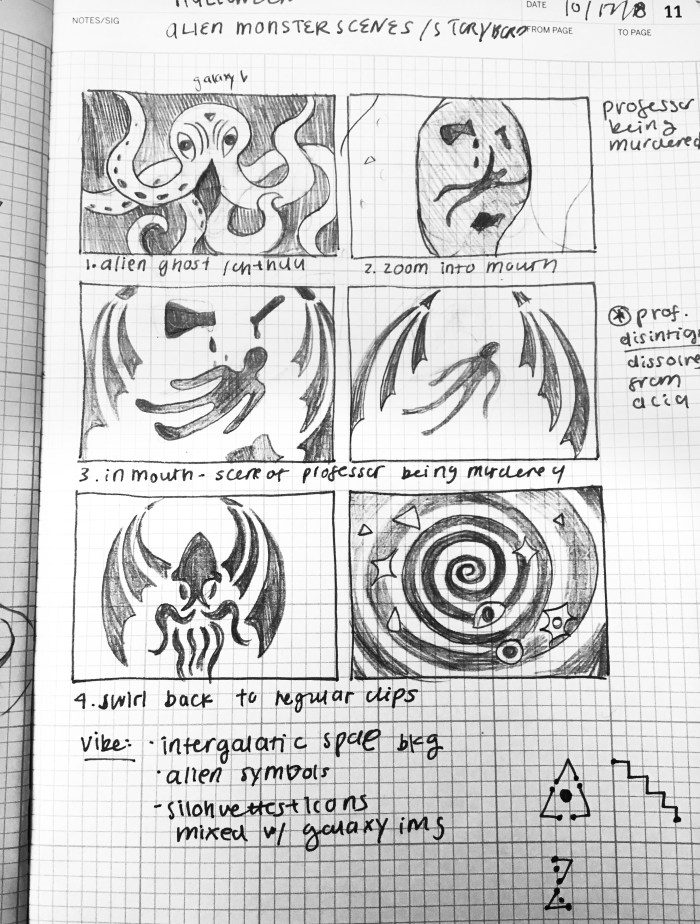 NOTES/SIG
HALLOWEEN
DATE 10/17/18 11
ALIEN MONSTER SCENES / STORYBORD
FROM PAGE
TO PAGE
galaxy
professor
being
murdered
1. alien ghost / cnthulu
2. zoom into mouth
* prof.
disintig
dissolve
from
acid
3. in mouth - scene of professor being murdered
4. swirl back to regular clips
Vibe: · intergalatic spae bkg
· alien symbols
- silohuettes + icons
mixed w/ galaxy ims